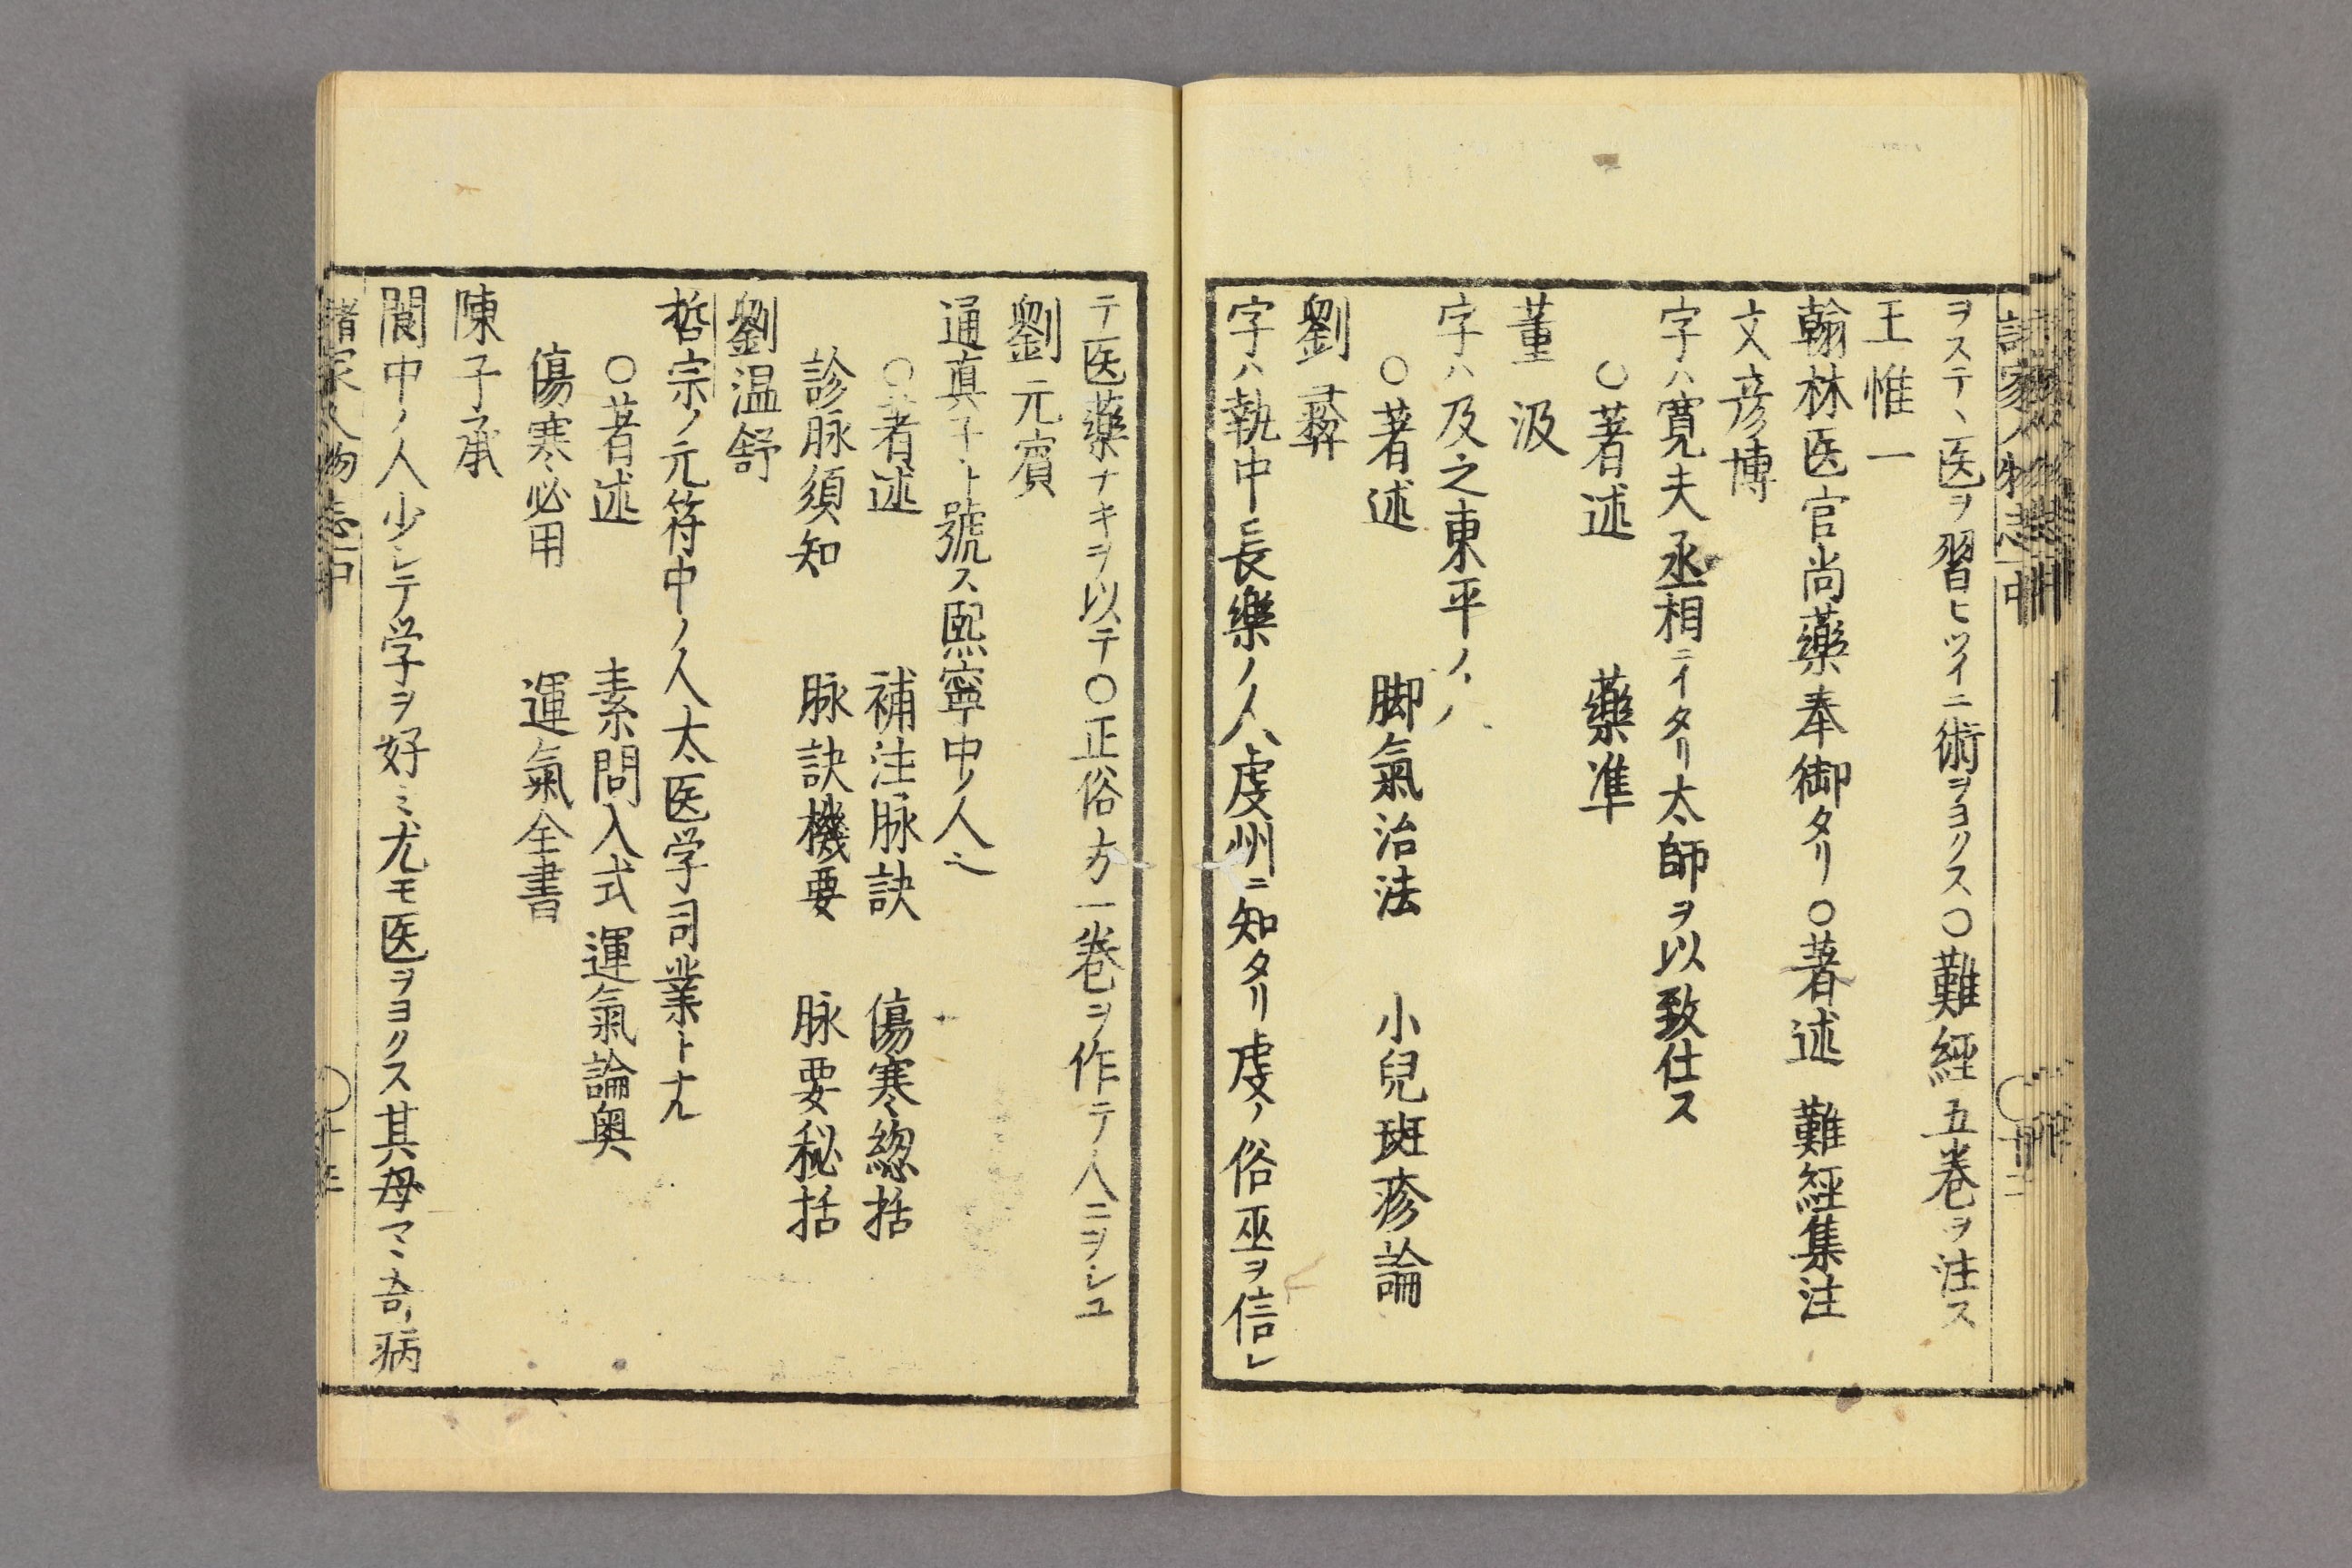 ヲステヽ医ヲ習ヒツイニ術ヲヨクス○難經五巻ヲ注ス
王惟一
翰林医官尚藥奉御タリ○著述 難經集注
文彦博
字ハ寛夫丞相ニイタリ太師ヲ以致仕ス
○著述 藥準
董汲
字ハ及之東平ノ人
○著述 脚氣治法 小兒斑疹論
劉彛
字ハ執中長樂ノ人虔州ニ知タリ虔ノ俗巫ヲ信レ
テ医藥ナキヲ以テ○正俗方一巻ヲ作テ人ニヲシユ
劉元賓
通真子ト號ス熙寧中ノ人也
○著述 補注脉訣 傷寒緫括
診脉須知 脉訣機要 脉要秘括
劉温舒
哲宗ノ元符中ノ人太医学司業トナル
○著述 素問入式運氣論奥
傷寒必用 運氣全書
陳子承
閬中ノ人少シテ学ヲ好ミ尤モ医ヲヨクス其母マヽ奇病
諸家人物志 中